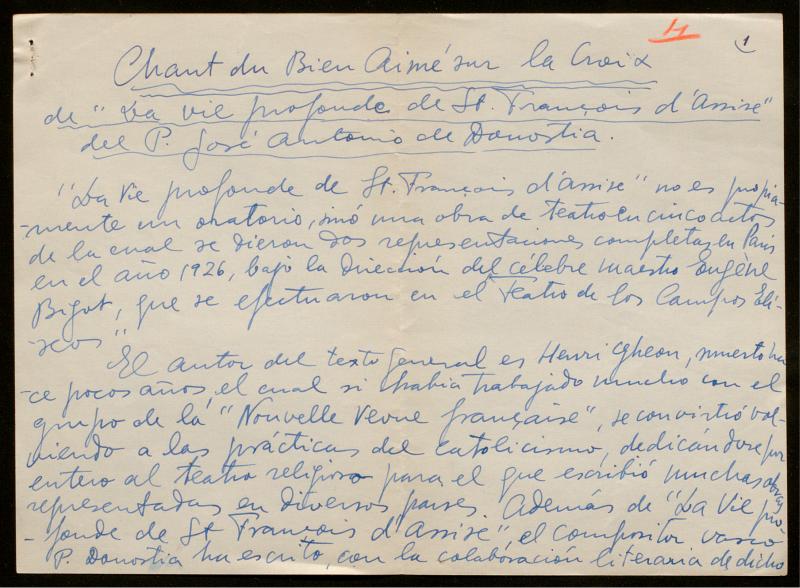 4
1
Chant du Bien Aimé sur la Croix
de "La vie profonde de St. François d'Assise"
del P. José Antonio de Donostia.
"La Vie profonde de St. François d'Assise" no es propia-
-mente un oratorio, sinó una obra de teatro en cinco actos
de la cual se dieron dos representaciones completas en París
en el año 1926, bajo la dirección del célebre maestro Eugène
Bigot, que se efectuaron en el "Teatro de los Campos Elí-
-seos"
El autor del texto general es Henri Gheon, muerto ha-
ce pocos años, el cual si había trabajado mucho con el
grupo de la "Nouvelle Revue française", se convirtió vol-
viendo a las prácticas del catolicismo, dedicándose por
entero al teatro religioso para el que escribió muchas obras
representadas en diversos países. Además de "La Vie pro-
-fonde de St François d'Assise", el compositor vasco
P. Donostia ha escrito, con la colaboración literaria de dicho